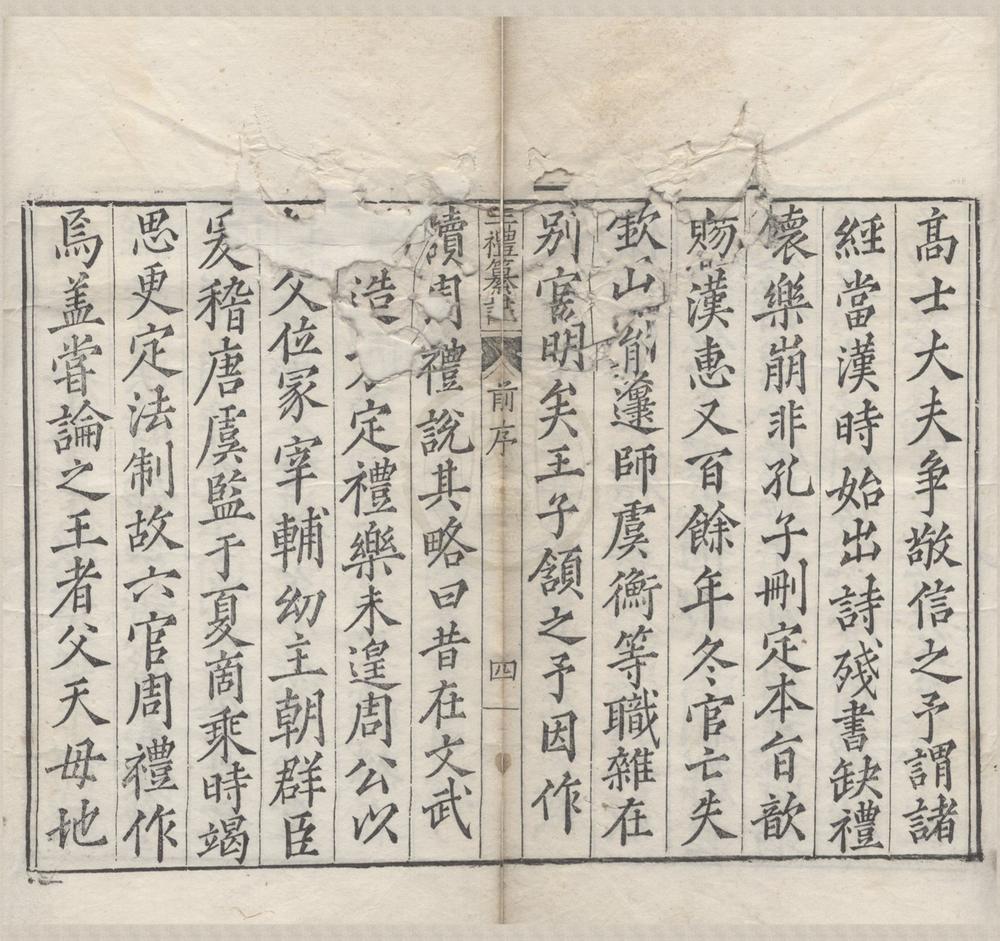 高士大夫争敬信之予謂諸
經當漢時始出詩殘書缺禮
懷樂崩非孔子刪定本旨歆
賜漢惠又百餘年冬官亡失
歟山 邍師虞衡等職雜在
別官明矣王子頷之予因作
三禮纂註
前序
四
讀周禮說其略曰昔在文武
造 定禮樂未遑周公以
父位冢宰輔幼主朝群臣
爰稽唐虞監于夏商乘時竭
思更定法制故六官周禮作
焉盖嘗論之王者父天母地